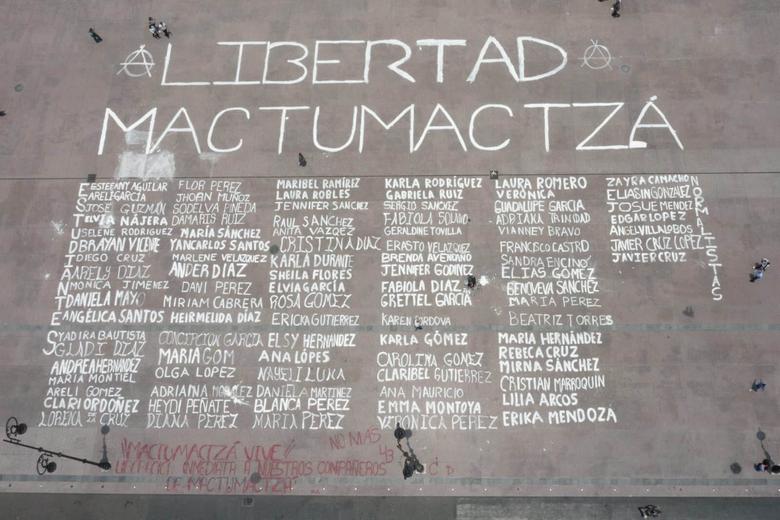 LIBERTAD
MACTUMACTZÁ
ESTUDIANTES
ESTEFANY AGUILAR
ARELI GARCIA
JOSÉ GUZMÁN
ELVIA NÁJERA
SELENE RODRIGUEZ
BRAYAN VICENTE
DIEGO CRUZ
ARELY DIAZ
MONICA JIMENEZ
DANIELA MAYO
ANGÉLICA SANTOS
YADIRA BAUTISTA
GLADI DIAZ
ANDREA HERNÁNDEZ
MARIA MONTIEL
ARELI GOMEZ
CLARI ORDOÑEZ
LORENA DE LA CRUZ
FLOR PEREZ
JHOAN MUÑOZ
PINEDA
DAMARIS RUIZ
MARÍA SÁNCHEZ
YANCARLOS SANTOS
MARLENE VELAZQUEZ
ANDER DÍAZ
DANI PEREZ
MIRIAM CABRERA
HEIRMELIDA DÍAZ
CONCEPCION GARCIA
MARIA GOM
OLGA LOPEZ
ADRIANA
HEYDI PEÑATE
DIANA PEREZ
MARIBEL RAMÍREZ
LAURA ROBLES
JENNIFER SANCHEZ
RAUL SANCHEZ
ANITA VAZQEZ
CRISTINA DIAZ
KARLA DURANTE
SHEILA FLORES
ELVIA GARCÍA
ROSA GOMEZ
ERICKA GUTIERREZ
ELSY HERNANDEZ
ANA LÓPES
NAYELI LUNA
DANIELA MARTINEZ
BLANCA PEREZ
MARIA PEREZ
KARLA RODRÍGUEZ
GABRIELA RUIZ
SERGIO SANCHEZ
FABIOLA SOLANO
GERALDINE TOVILLA
ERASTO VELAZQUEZ
BRENDA AVENDAÑO
JENNIFER GODINEZ
FABIOLA DIAZ
GRETTEL GARCÍA
KAREN CORDOVA
KARLA GÓMEZ
CAROLINA GOMEZ
CLARIBEL GUTIERREZ
ANA MAURICIO
EMMA MONTOYA
VERONICA PEREZ
LAURA ROMERO
VERÓNICA
GUADALUPE GARCIA
ADRIANA TRINIDAD
VIANNEY BRAVO
FRANCISCO CASTRO
SANDRA ENCINO
ELÍAS GÓMEZ
GENOVEVA SÁNCHEZ
MARIA PEREZ
BEATRIZ TORRES
MARÍA HERNÁNDEZ
REBECA CRUZ
MIRNA SÁNCHEZ
CRISTIAN MARROQUIN
LILIA ARCOS
ERIKA MENDOZA
ZAYRA CAMACHO
ELIASIN GONZALEZ
JOSUE MENDEZ
EDGAR LOPEZ
ANGEL VILLALOBOS
JAVIER CRUZ LOPEZ
JAVIER CRUZ
NORMALISTAS
¡MACTUMACTZÁ VIVE!
NO MAS
43
LIBERACIÓN INMEDIATA A NUESTROS COMPAÑEROS
DE MACTUMACTZÁ